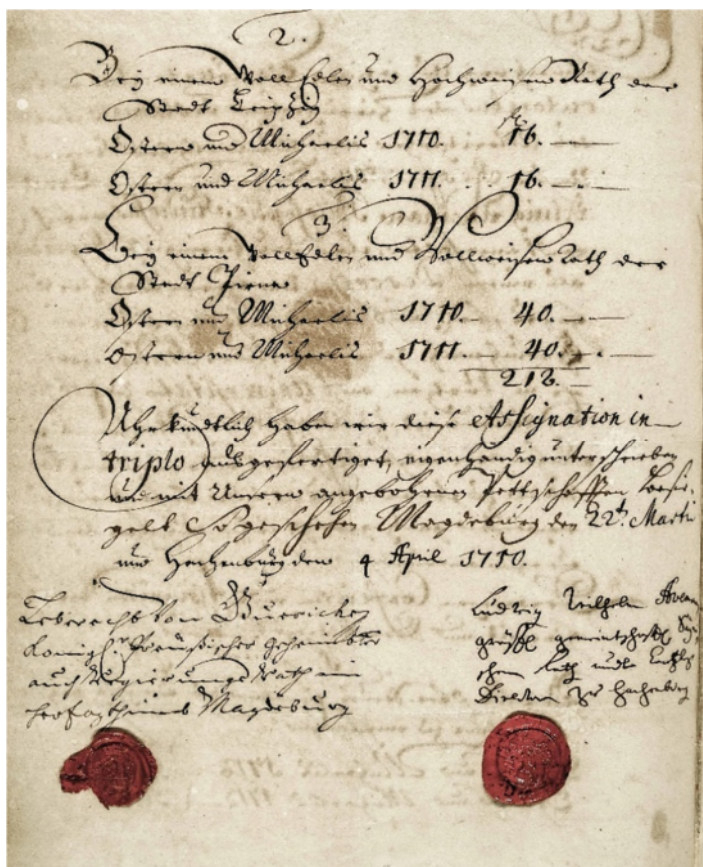 2.
Bey einem WollEdlen und Hochweisen Rath der
Stadt Leipzig
Ostern und Michaelis 1710. 16.
Ostern und Michaelis 1711. 16.
3.
Bey einem WollEdlen und Wollweisen Rath der
Stadt Pirna
Ostern und Michaelis 1710. 40.
Ostern und Michaelis 1711. 40.
212.
Uhrkundtlich haben wir diese Assignation in
triplo ausgefertiget, eigenhändig unterschrieben
und mit Unsern angebohrnen Pettschafften besie-
gelt So geschehen Magdeburg den 22t. Martii
und Hachenburg den 4 April 1710.
Leberecht von Guericke
Königl. Preußischer geheimbter
auch Regierungs Rath im
Herzogthumb Magdeburg
Ludwig Wilhelm
gräffl. gemeinschafftl.
Rath undt
Director zu Hachenburg